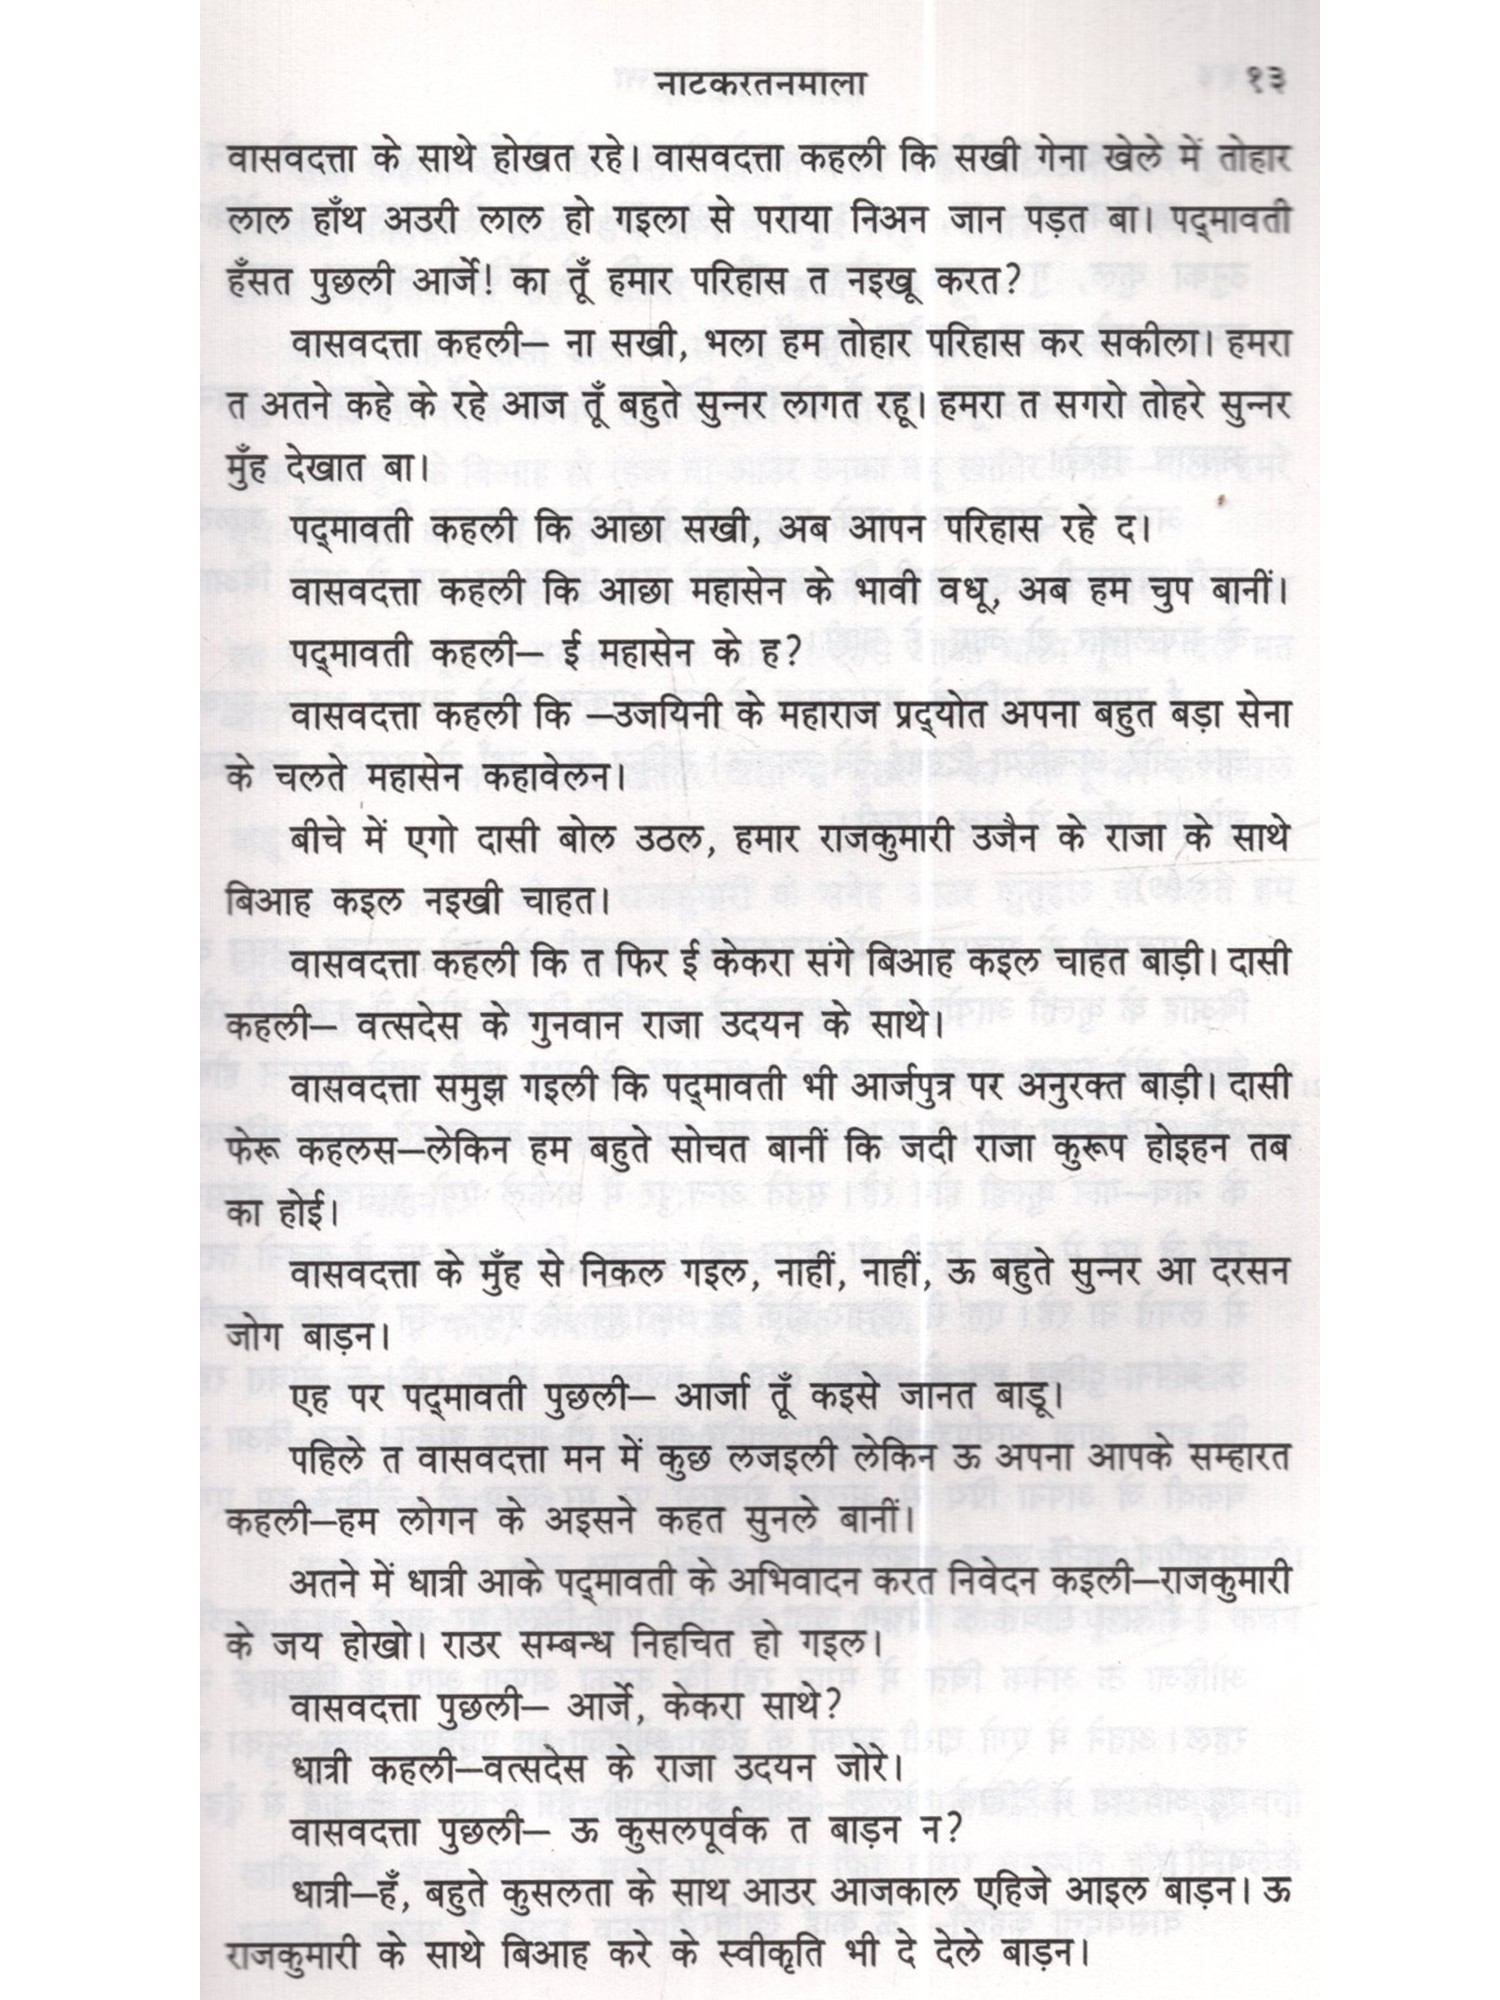 नाटकरतनमाला १३
वासवदत्ता के साथे होखत रहे। वासवदत्ता कहली कि सखी गेना खेले में तोहार
लाल हाँथ अउरी लाल हो गइला से पराया निअन जान पड़त बा। पद्‌मावती
हँसत पुछली आर्जे! का तूँ हमार परिहास त नइखू करत?
वासवदत्ता कहली— ना सखी, भला हम तोहार परिहास कर सकीला। हमरा
त अतने कहे के रहे आज तूँ बहुते सुन्नर लागत रहू। हमरा त सगरो तोहरे सुन्नर
मुँह देखात बा।
पद्‌मावती कहली कि आछा सखी, अब आपन परिहास रहे द।
वासवदत्ता कहली कि आछा महासेन के भावी वधू, अब हम चुप बानीं।
पद्‌मावती कहली— ई महासेन के ह?
वासवदत्ता कहली कि —उजयिनी के महाराज प्रद्‌योत अपना बहुत बड़ा सेना
के चलते महासेन कहावेलन।
बीचे में एगो दासी बोल उठल, हमार राजकुमारी उजैन के राजा के साथे
बिआह कइल नइखी चाहत।
वासवदत्ता कहली कि त फिर ई केकरा संगे बिआह कइल चाहत बाड़ी। दासी
कहली— वत्सदेस के गुनवान राजा उदयन के साथे।
वासवदत्ता समुझ गइली कि पद्‌मावती भी आर्जपुत्र पर अनुरक्त बाड़ी। दासी
फेरू कहलस—लेकिन हम बहुते सोचत बानीं कि जदी राजा कुरूप होइहन तब
का होई।
वासवदत्ता के मुँह से निकल गइल, नाहीं, नाहीं, ऊ बहुते सुन्नर आ दरसन
जोग बाड़न।
एह पर पद्‌मावती पुछली— आर्जा तूँ कइसे जानत बाडू।
पहिले त वासवदत्ता मन में कुछ लजइली लेकिन ऊ अपना आपके सम्हारत
कहली—हम लोगन के अइसने कहत सुनले बानीं।
अतने में धात्री आके पद्‌मावती के अभिवादन करत निवेदन कइली—राजकुमारी
के जय होखो। राउर सम्बन्ध निहचित हो गइल।
वासवदत्ता पुछली— आर्जे, केकरा साथे?
धात्री कहली—वत्सदेस के राजा उदयन जोरे।
वासवदत्ता पुछली— ऊ कुसलपूर्वक त बाड़न न?
धात्री—हँ, बहुते कुसलता के साथ आउर आजकाल एहिजे आइल बाड़न। ऊ
राजकुमारी के साथे बिआह करे के स्वीकृति भी दे देले बाड़न।